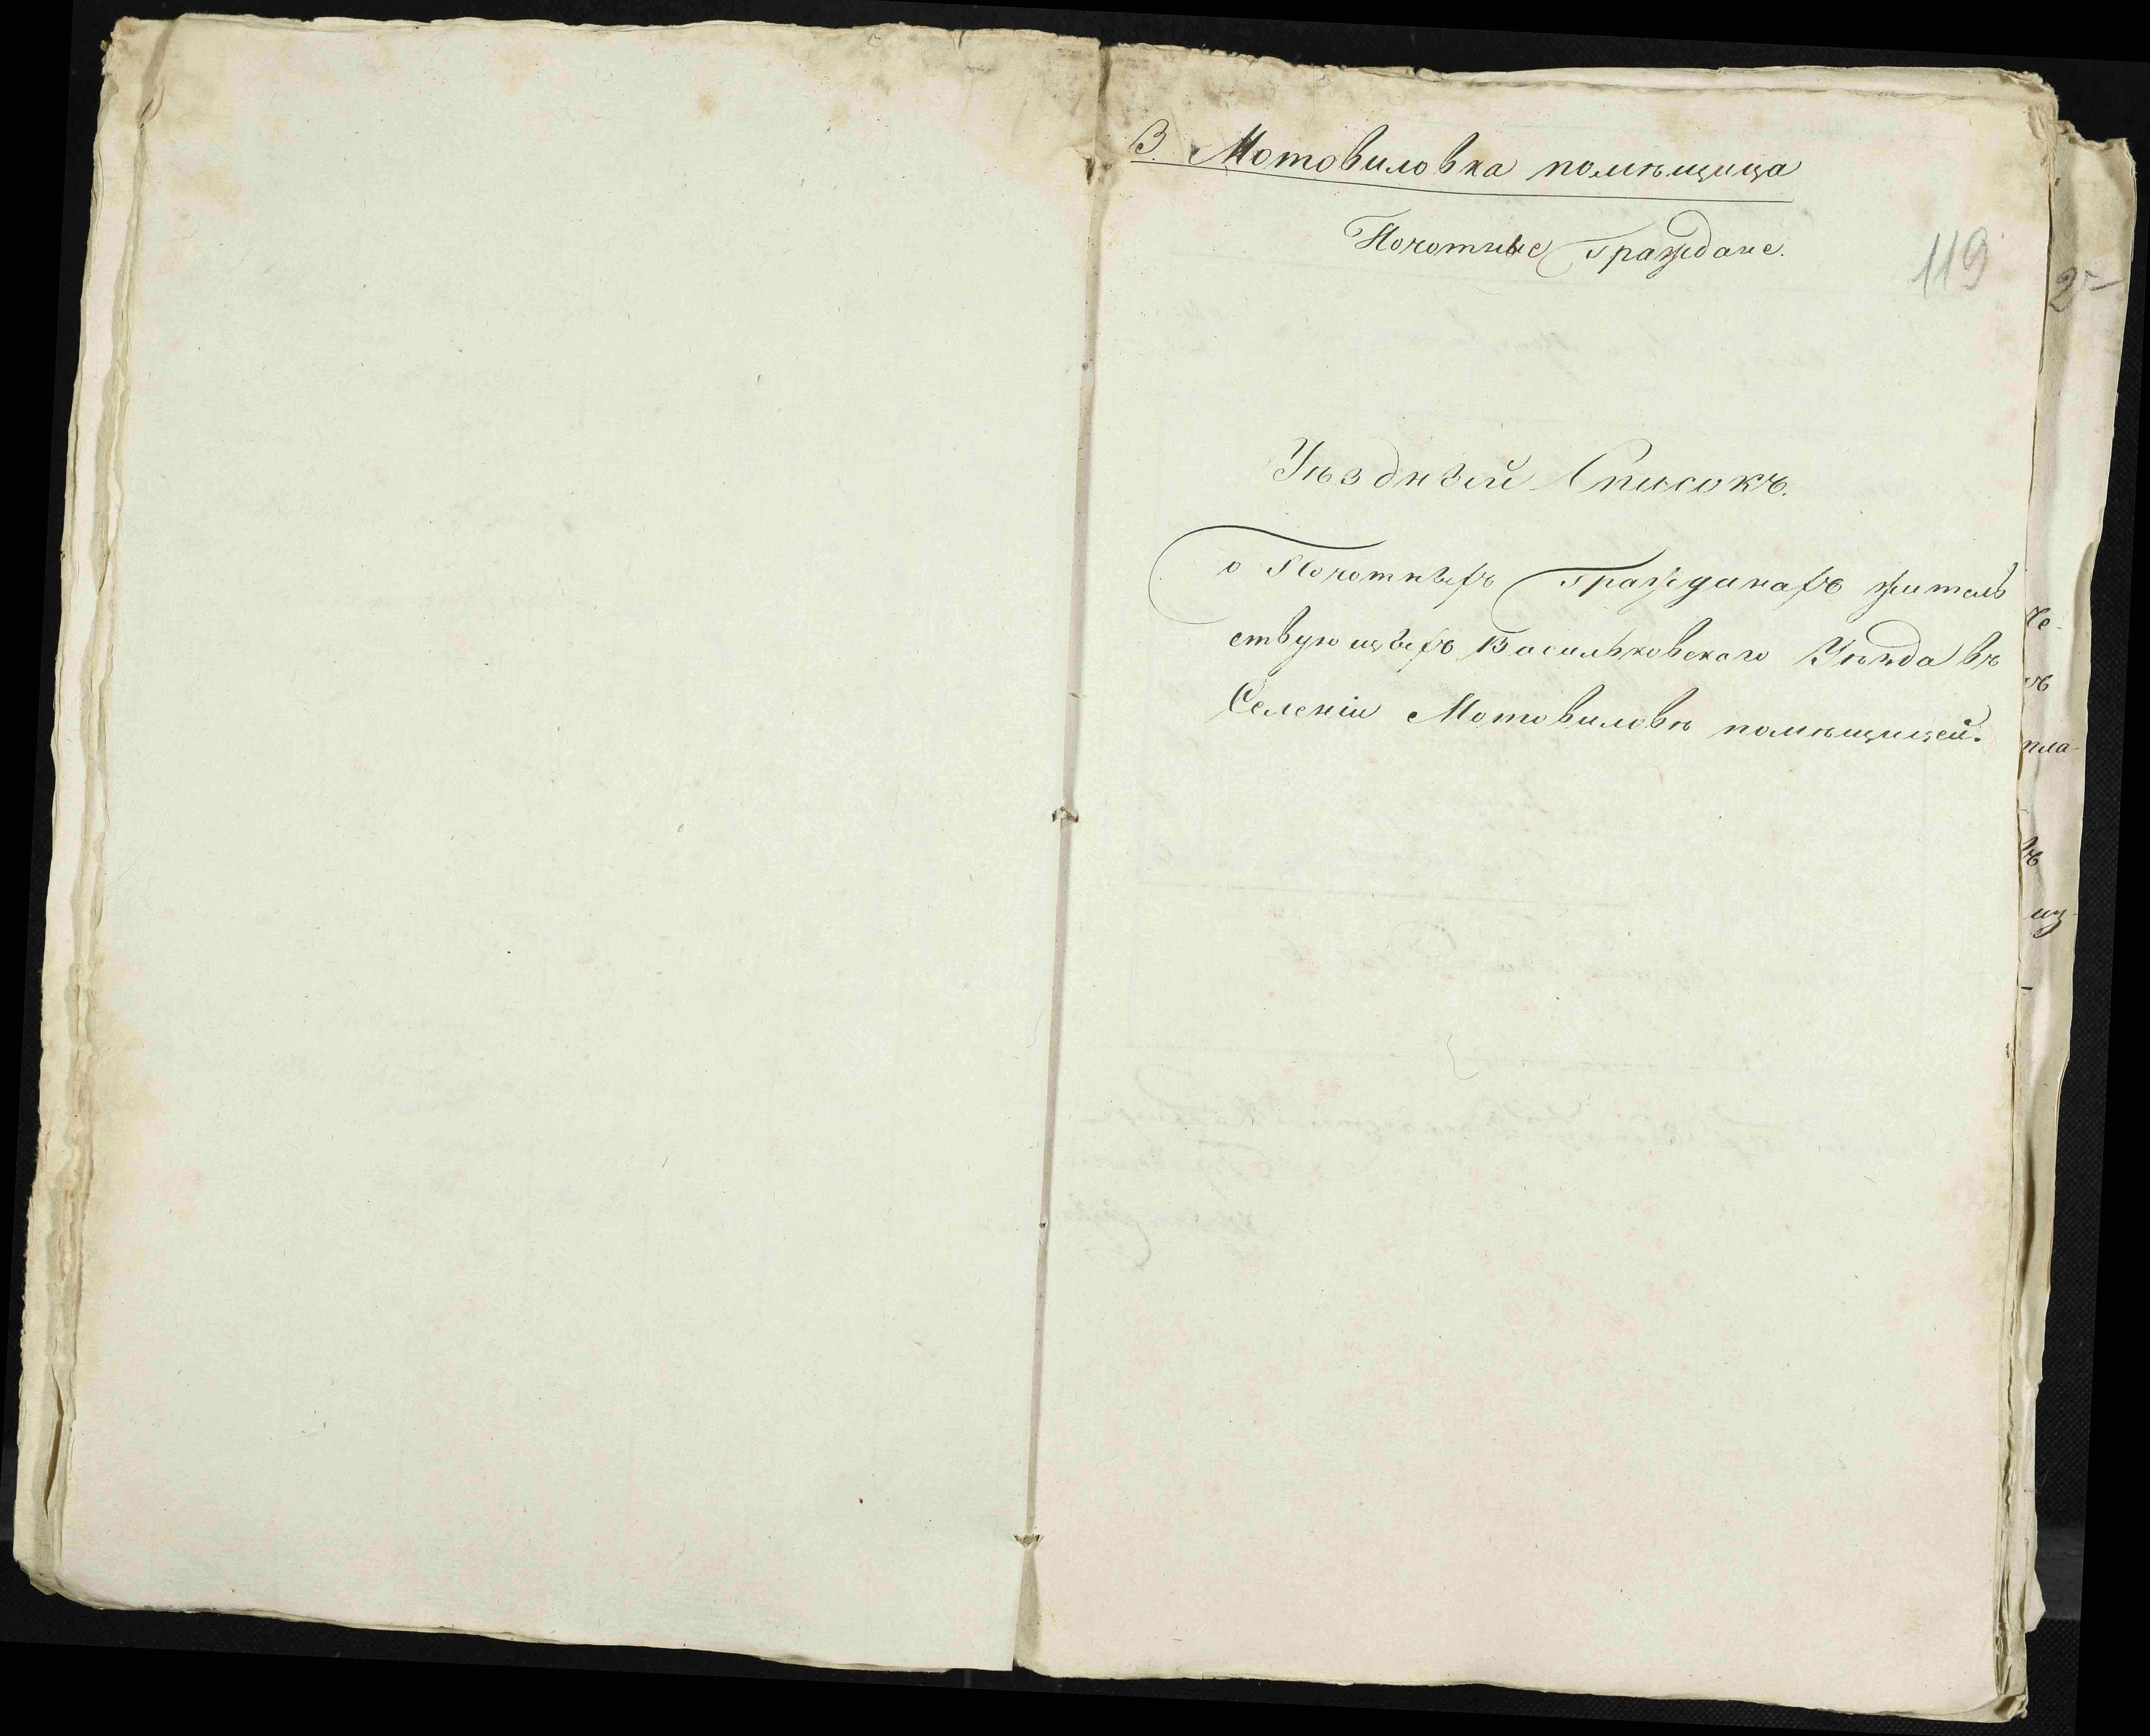 В. Мотовиловка помѣщица
Почотные Граждане.
119
2
Уѣздный Списокъ.
о Почотныхъ Гражданахъ житель
ствующихъ Васильковскаго Уѣзда въ
Селеніи Мотовиловѣ помѣщицей.
че-
пла-
из-